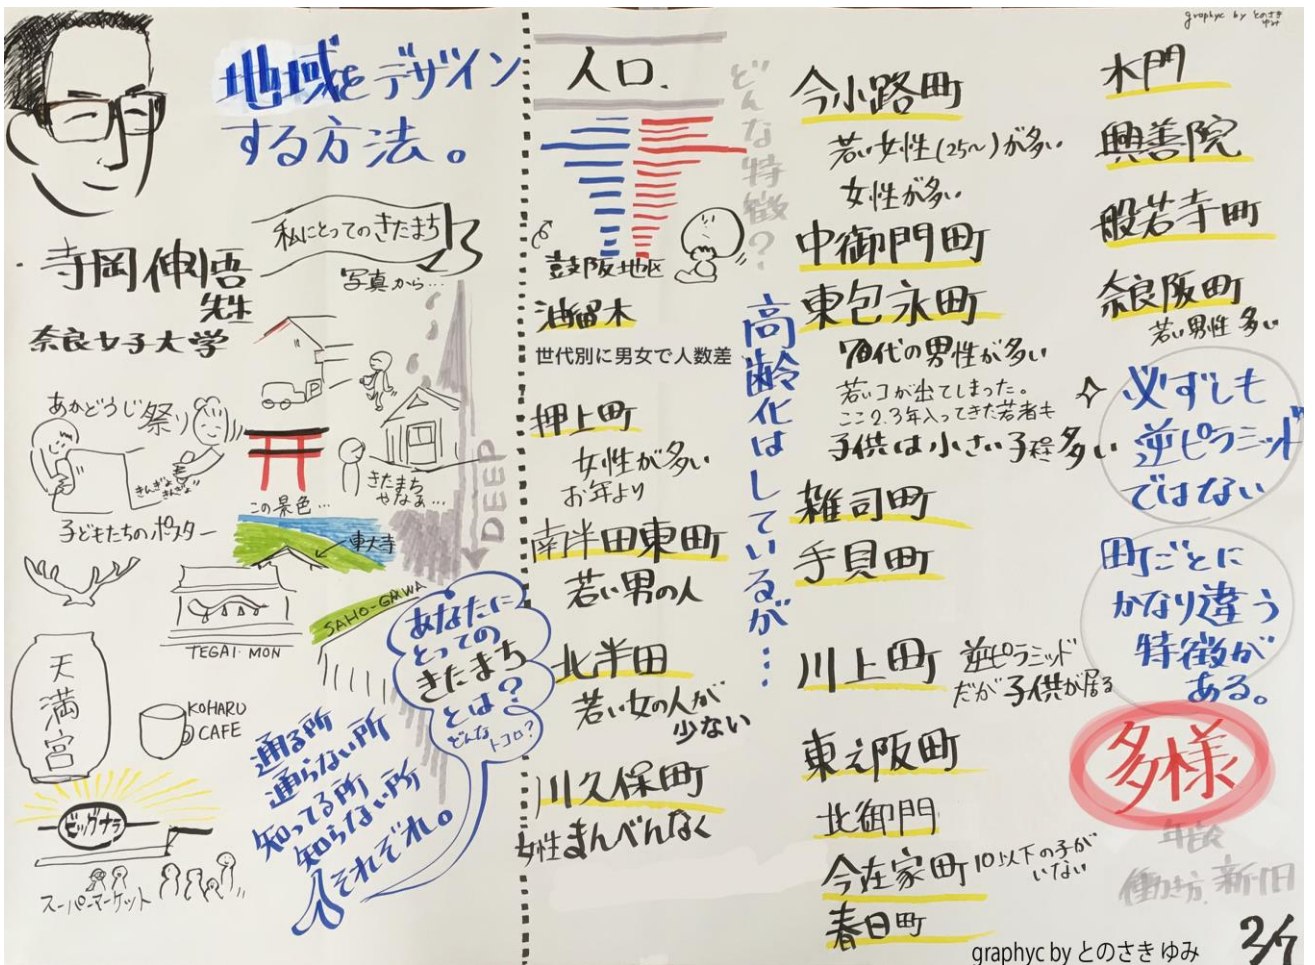 graphyc by とのさき
ゆみ
地域をデザイン
する方法。
寺岡伸悟
先生
奈良女子大学
私にとってのきたまち
写真から…
あかどうじ祭り
きんぎょ
きんぎょ
子どもたちのポスター
P
きたまち
やなぁ…
この景色…
東大寺
DEEP
TEGAI・MON
SAHO-GAWA
天満宮
KOHARU
CAFE
ビッグナラ
スーパーマーケット
あなたに
とっての
きたまち
とは?
どんなトコロ?
通る所
通らない所
知ってる所
知らない所
それぞれ。
人口.
どんな特徴?
鼓阪地区
油留木
世代別に男女で人数差
押上町
女性が多い
お年より
南半田東町
若い男の人
北半田
若い女の人が
少ない
川久保町
女性まんべんなく
高齢化はしているが…
今小路町
若い女性(25〜)が多い
女性が多い
中御門町
東包永町
70代の男性が多い
若いコが出てしまった。
ここ2.3年入ってきた若者も
子供は小さい子程多い
雑司町
手貝町
川上町
逆ピラミッド
だが子供が居る
東之阪町
北御門
今在家町
10以下の子が
いない
春日町
水門
興善院
般若寺町
奈良阪町
若い男性多い
必ずしも
逆ピラミッド
ではない
町ごとに
かなり違う
特徴が
ある。
多様
年齢
働き方.新旧
2/7
graphyc by とのさき ゆみ